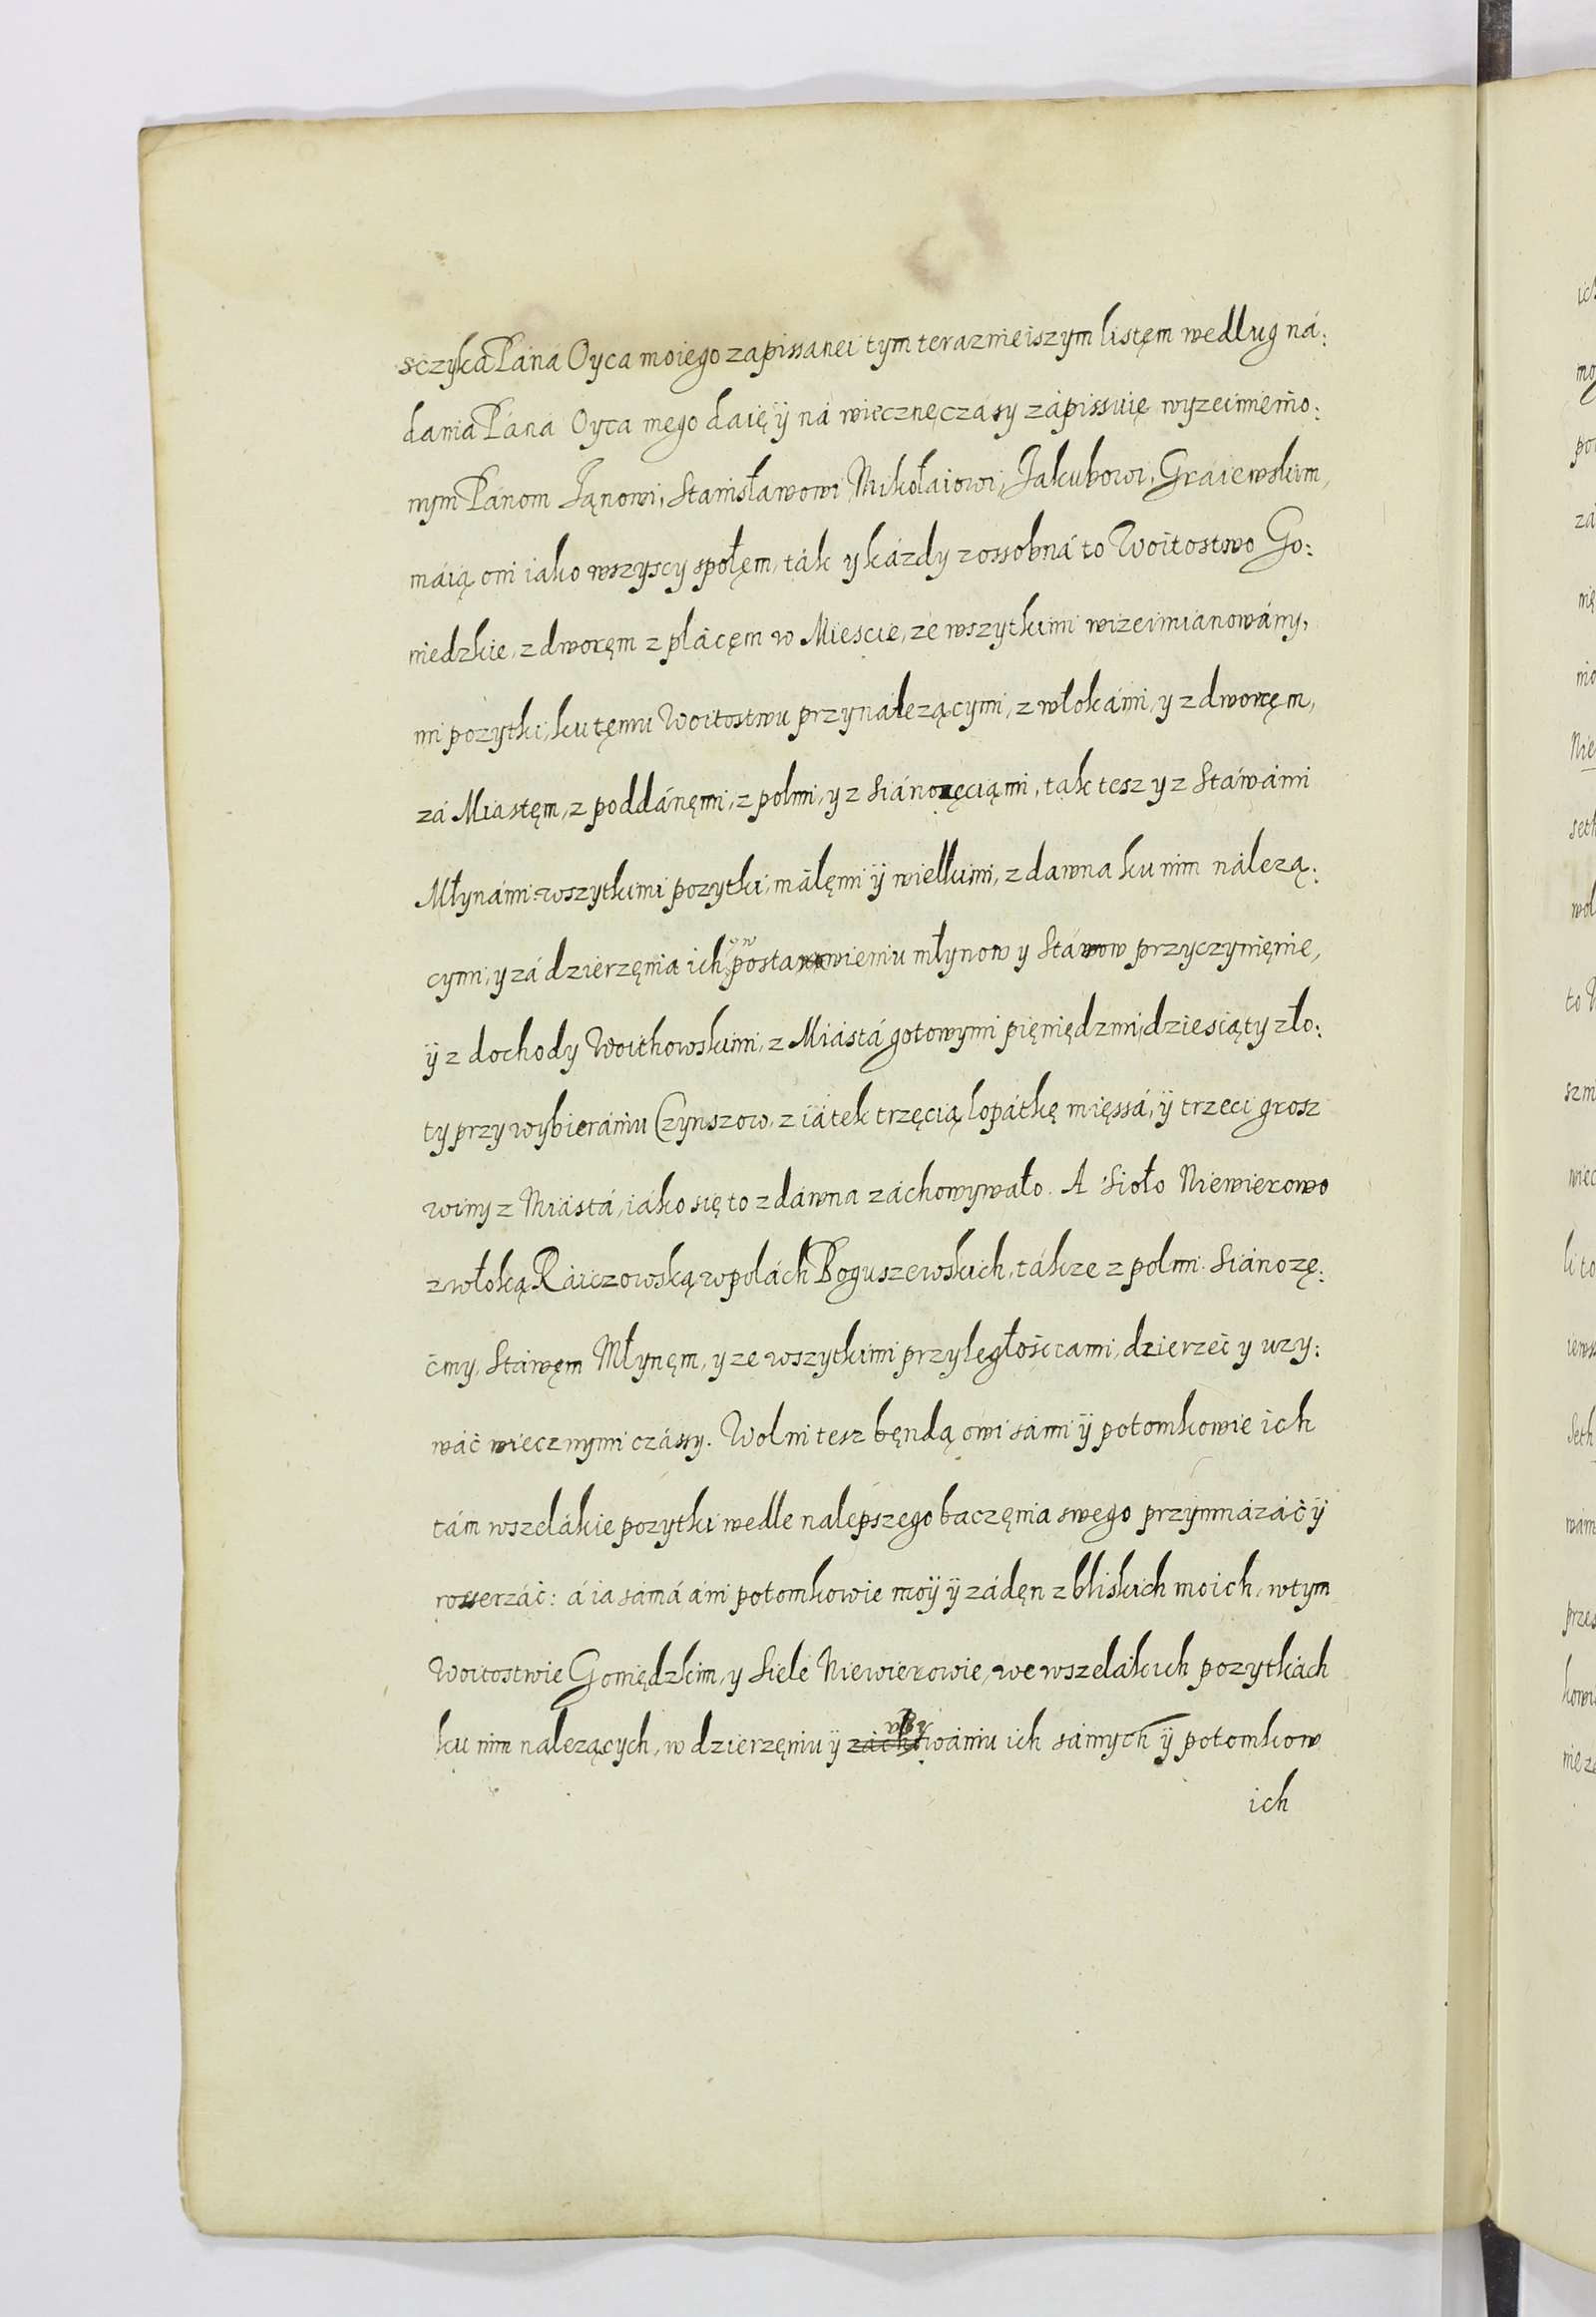 sczyka Páná Oyca moiego zapissanei tym terazmeiszym listęm według ná:
dania Páná Oyca mego daię ÿ ná wiecznę czásy zápissuię wyzeimięnio:
nym Pánom Jąnowi, Stanisławowi, Mikołaiowi, Jakubowi, Graiewskim,
máią oni iako wszyscy społęm, ták y kázdy zossobná to Woitostwo Go:
niedzkie, z dworęm z plácęm w Miescie, ze wszytkimi wizeimianowány,
mi pozytki, ku tęmu Woitostwu przynálezącymi, z włokámi, y z dworcęm,
zá Miastęm, z poddánęmi, z polmi, y z Siánozęciąmi, tak tesz y z Stáwámi
Młynámi: wszytkimi pozytki, máłęmi ÿ wielkimi, z dawna ku nim nálezą:
cymi, y zá dzierzęnia ich, yw postanowieniu młynow y Stáwow przyczynięnie,
ÿ z dochody Woithowskimi, z Miástá gotowymi pięniędzmi, dziesiąty zło:
ty przy wybierániu Czynszow, z iátek trzęcią lopátkę mięssá, ÿ trzeci grosz
winy z Miástá, iáko się to z dáwna záchowywało. A Sioło Niewierowo
z włoką Ráiczowską w polách Boguszewskich, tákze z polmi Siánozę:
ćmy, Stáwęm Młynęm, y ze wszytkimi przyległościami, dzierzeć y uzy:
wáć wiecznymi czássy. Wolni tesz będą oni sámi ÿ potomkowie ich
tám wszelákie pozytki wedle nalepszego baczęnia swego przymnázáć ÿ
rosserzáć: á ia sámá áni potomkowie moÿ ÿ zádęn z bliskich moich, w tym
Woitostwie Goniędzkim, y Siele Niewierowie, we wszelákich pozytkách
ku nim nalezących, w dzierzęniu ÿ vzywániu ich sámych ÿ potomkow
ich